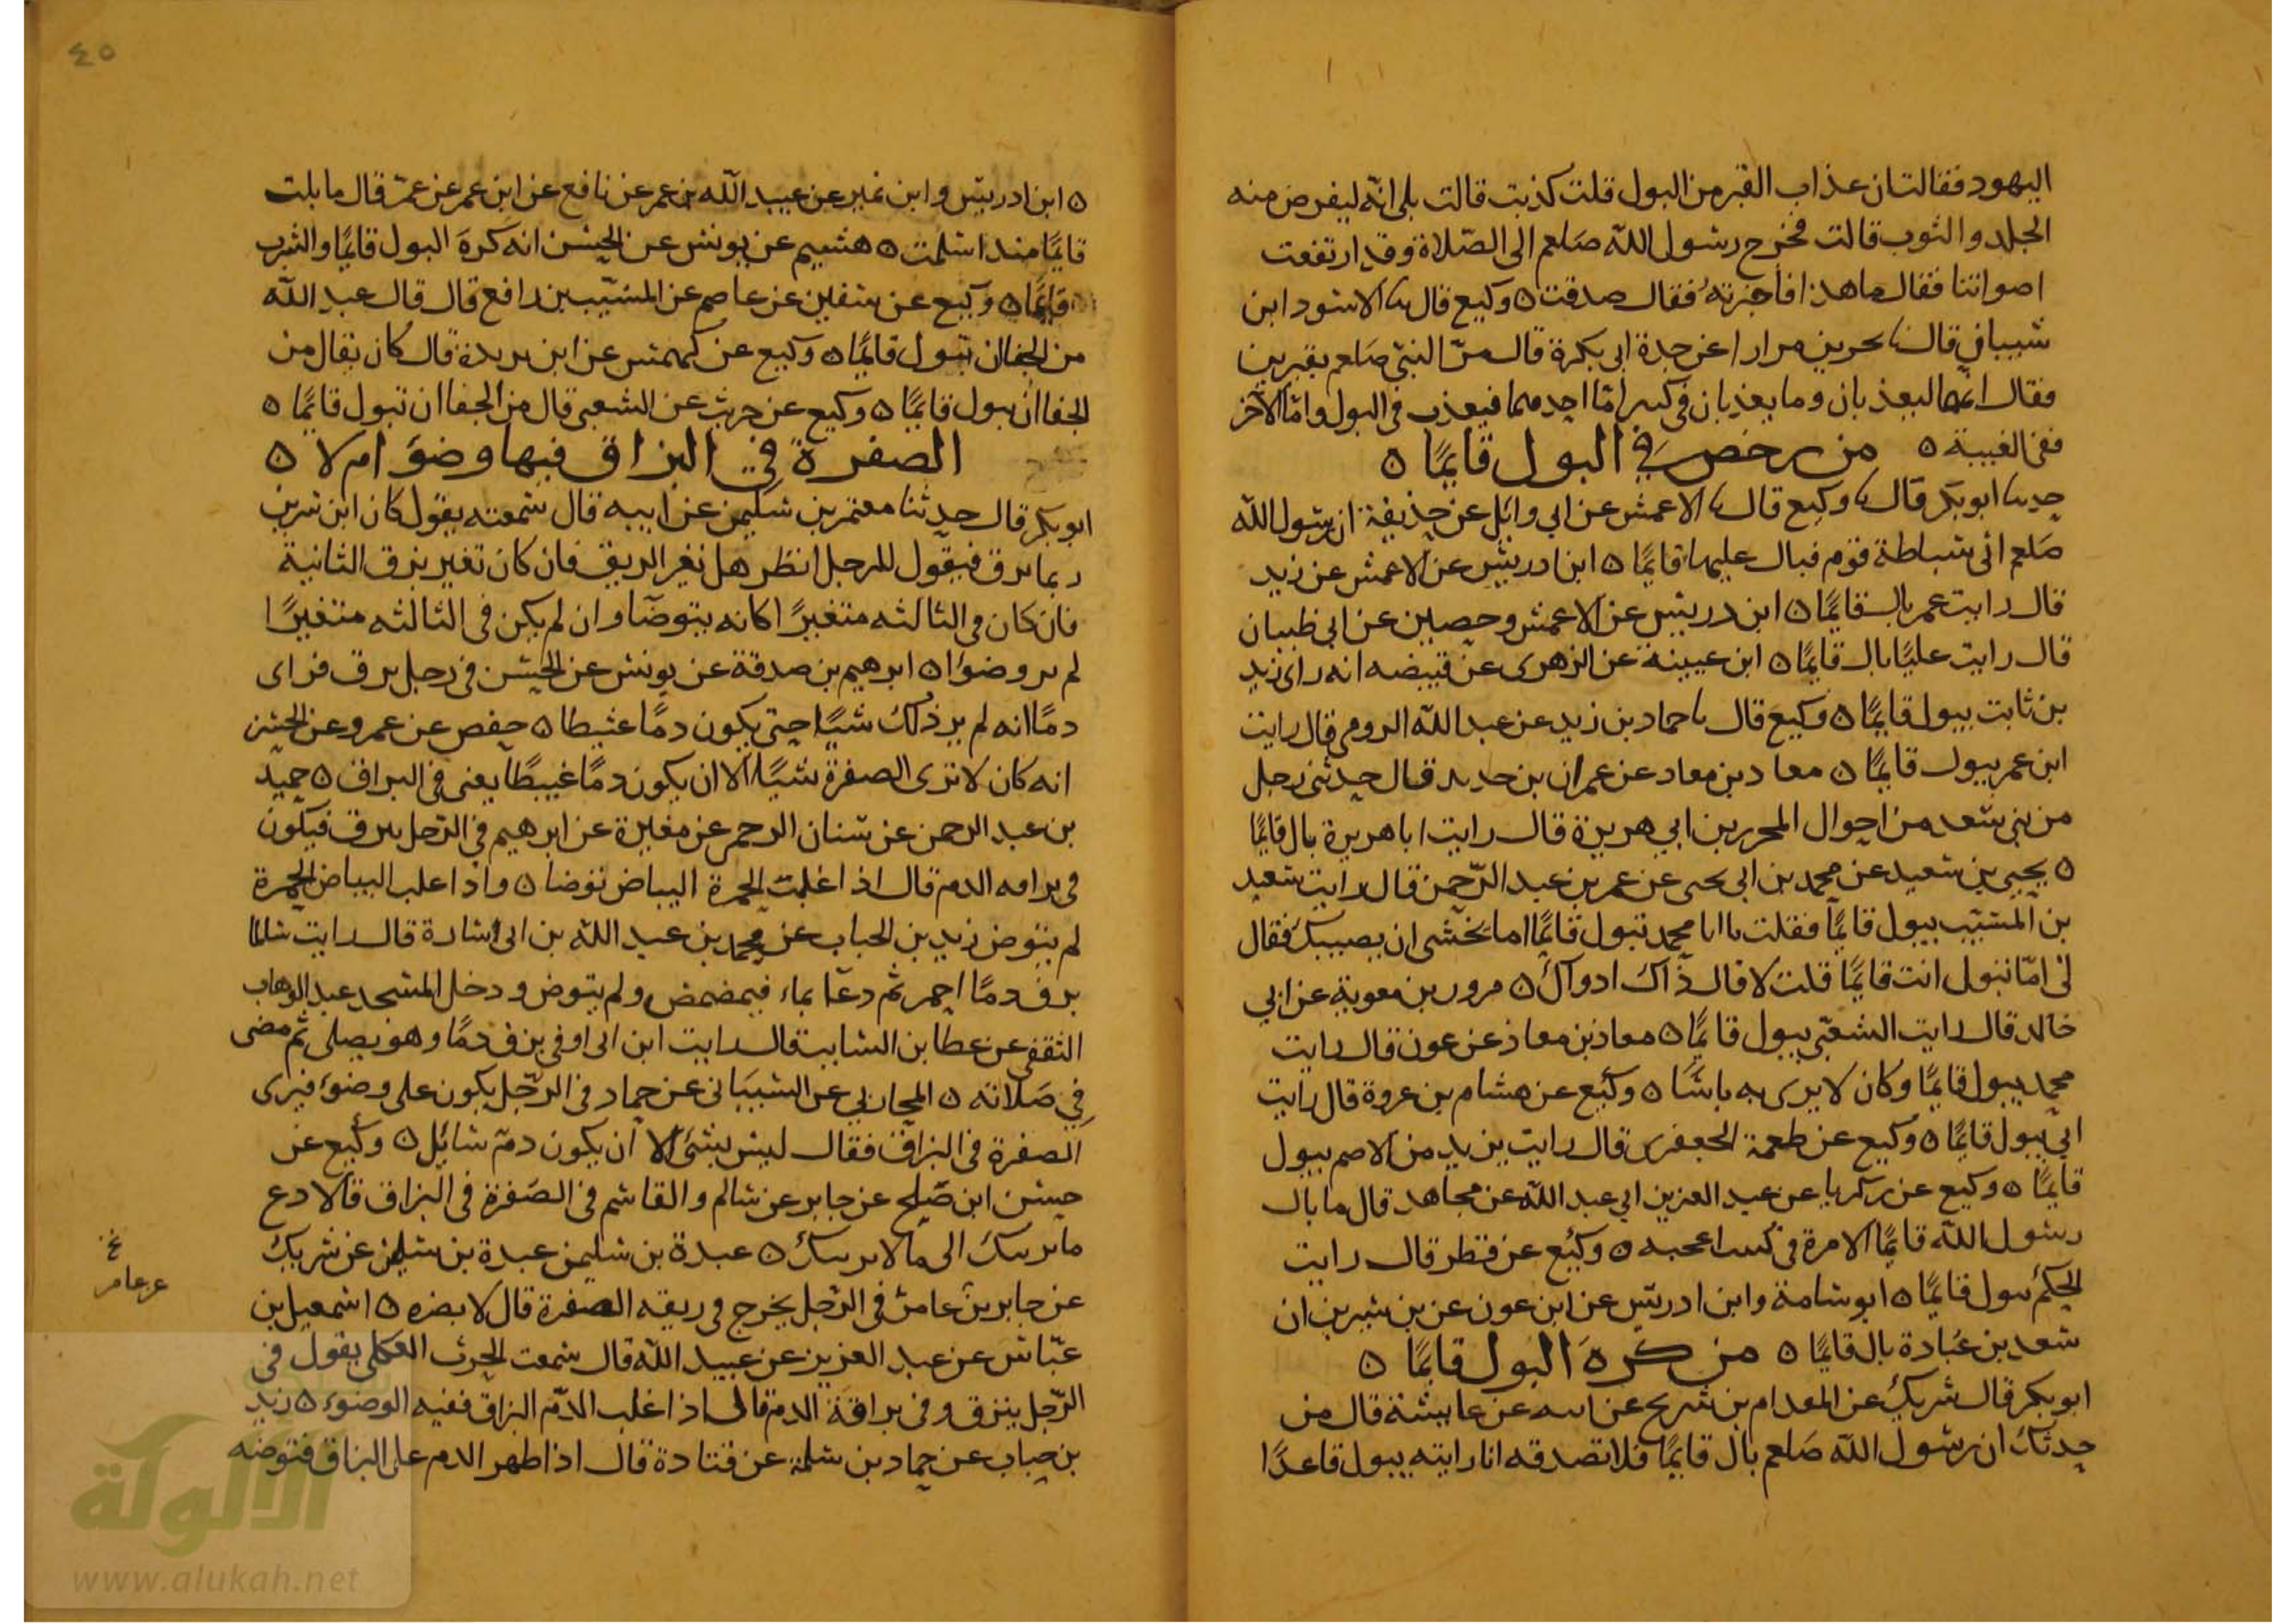 اليهود فقالت ان عذاب القبر من البول قلت كذبت قالت بلى انه ليقرض منه
الجلد والثوب قالت فخرج رسول الله صلعم الى الصلاة وقد ارتفعت
اصواتنا فقال ما هذا فاخبرته فقال صدقت ٥ وكيع قال ثنا الاسود ابن
شيبان قال ثنا بحر بن مرار عن جدة ابي بكرة قال مر النبي صلعم بقبرين
فقال انهما ليعذبان وما يعذبان في كبير اما احدهما فيعذب في البول واما الآخر
ففي الغيبة ٥ من رخص في البول قايمًا ٥
حدثنا ابو بكر قال ثنا وكيع قال ثنا الاعمش عن ابي وائل عن حذيفة ان رسول الله
صلعم اتى سباطة قوم فبال عليها قايمًا ٥ ابن ادريس عن الاعمش عن زيد
قال رايت عمر بال قايمًا ٥ ابن دريس عن الاعمش وحصين عن ابي ظبيان
قال رايت عليًا بال قايمًا ٥ ابن عيينة عن الزهري عن قبيصه انه راى زيد
بن ثابت يبول قايمًا ٥ وكيع قال ثنا حماد بن زيد عن عبد الله الرومي قال رايت
ابن عمر يبول قايمًا ٥ معاد بن معاد عن عمران بن حدير قال حدثني رجل
من بني سعد من احوال المحرر بن ابي هريرة قال رايت ابا هريرة بال قايمًا
٥ يحيى بن سعيد عن محمد بن ابي يحيى عن عمر بن عبد الرحمن قال رايت سعيد
بن المسيب يبول قايمًا فقلت يا ابا محمد تبول قايمًا اما تخشى ان يصيبك فقال
لي اما تبول انت قايمًا قلت لا قال ذاك ادوا لك ٥ مرور بن معوية عن ابي
خالد قال رايت الشعبي يبول قايمًا ٥ معاذ بن معاذ عن عون قال رايت
محمد يبول قايمًا وكان لا يرى به باسًا ٥ وكيع عن هشام بن عروة قال رايت
ابي يبول قايمًا ٥ وكيع عن طعمة الجعفري قال رايت يزيد من الاصم يبول
قايمًا ٥ وكيع عن زكريا عن عبد العزيز ابي عبد الله عن مجاهد قال ما بال
رسول الله قايمًا الا مرة في كثيب اعجبه ٥ وكيع عن فطر قال رايت
الحكم يبول قايمًا ٥ ابو سامة وابن ادريس عن ابن عون عن بن سيرين ان
سعد بن عبادة بال قايمًا ٥ من كره البول قايمًا ٥
ابو بكر قال شريك عن المقدام بن شريح عن ابيه عن عايشة قال من
حدثك ان رسول الله صلعم بال قايمًا فلا تصدقه انا رايته يبول قاعدًا
٤٥
٥ ابن ادريس وابن نمير عن عبيد الله بن عمر عن نافع عن ابن عمر عن عمر قال ما بلت
قايمًا منذ اسلمت ٥ هشيم عن يونس عن الحسن انه كره البول قايمًا والشرب
قايمًا ٥ وكيع عن سفين عن عاصم عن المسيب بن رافع قال قال عبد الله
من الجفا ان تبول قايمًا ٥ وكيع عن كهمس عن ابن بريدة قال كان يقال من
الجفا ان تبول قايمًا ٥ وكيع عن حريث عن الشعبي قال من الجفا ان تبول قايمًا ٥
الصفرة في البزاق فيها وضوَ ام لا ٥
ابو بكر قال حدثنا معتمر بن سليمن عن ابيه قال سمعته يقول كان ابن سيرين
ربما بزق فيقول للرجل انظر هل تغير الريق فان كان تغير بزق الثانية
فان كان في الثالثه متغيرًا كانه يتوضا وان لم يكن في الثالثه متغيرًا
لم ير وضوًا ٥ ابرهيم بن صدقة عن يونس عن الحسن في رجل بزق فراى
دمًا انه لم ير ذلك شيًا حتى يكون دمًا عبيطا ٥ حفص عن عمرو عن الحسن
انه كان لا ترى الصفرة شيًا الا ان يكون دمًا غبيطًا يعني في البزاق ٥ حميد
بن عبد الرحمن عن سنان الرحمر عن مغيرة عن ابرهيم في الرجل يبزق فيكون
في بزاقه الدم قال اذا غلبت الحمرة البياض توضا ٥ واذا غلب البياض الحمرة
لم يتوض زيد بن الحباب عن محمد بن عبد الله بن ابي سارة قال رايت سالما
بزق دمًا احمر ثم دعا بماء فيمضمض ولم يتوض ودخل المسجد عبد الوهاب
الثقفي عن عطا بن السايب قال رايت ابن ابي اوفي بزق دمًا وهو يصلي ثم مضى
في صلاته ٥ المحاربي عن الشيباني عن حماد في الرجل يكون على وضوء فيرى
الصفرة في البزاق فقال ليس بشئ الا ان يكون دم سائل ٥ وكيع عن
حسن ابن صلح عن جابر عن سالم والقاسم في الصفرة في البزاق قالا دع
ما يريبك الى ما لا يريبك ٥ عبدة بن سليمن عبدة بن سليمن عن شريك
عن جابر بن عامر في الرجل يخرج في ريقه الصفرة قال لا يضره ٥ اسمعيل بن
عياش عن عبد العزيز عن عبيد الله قال سمعت الحرث العكلي يقول في
الرجل يبزق وفي بزاقة الدم قال اذا غلب الدم البزاق ففيه الوضوء ٥ زيد
بن حباب عن حماد بن سلمة عن قتادة قال اذا ظهر الدم على البزاق فتوضه
خ
عن عامر
الألوكة
www.alukah.net